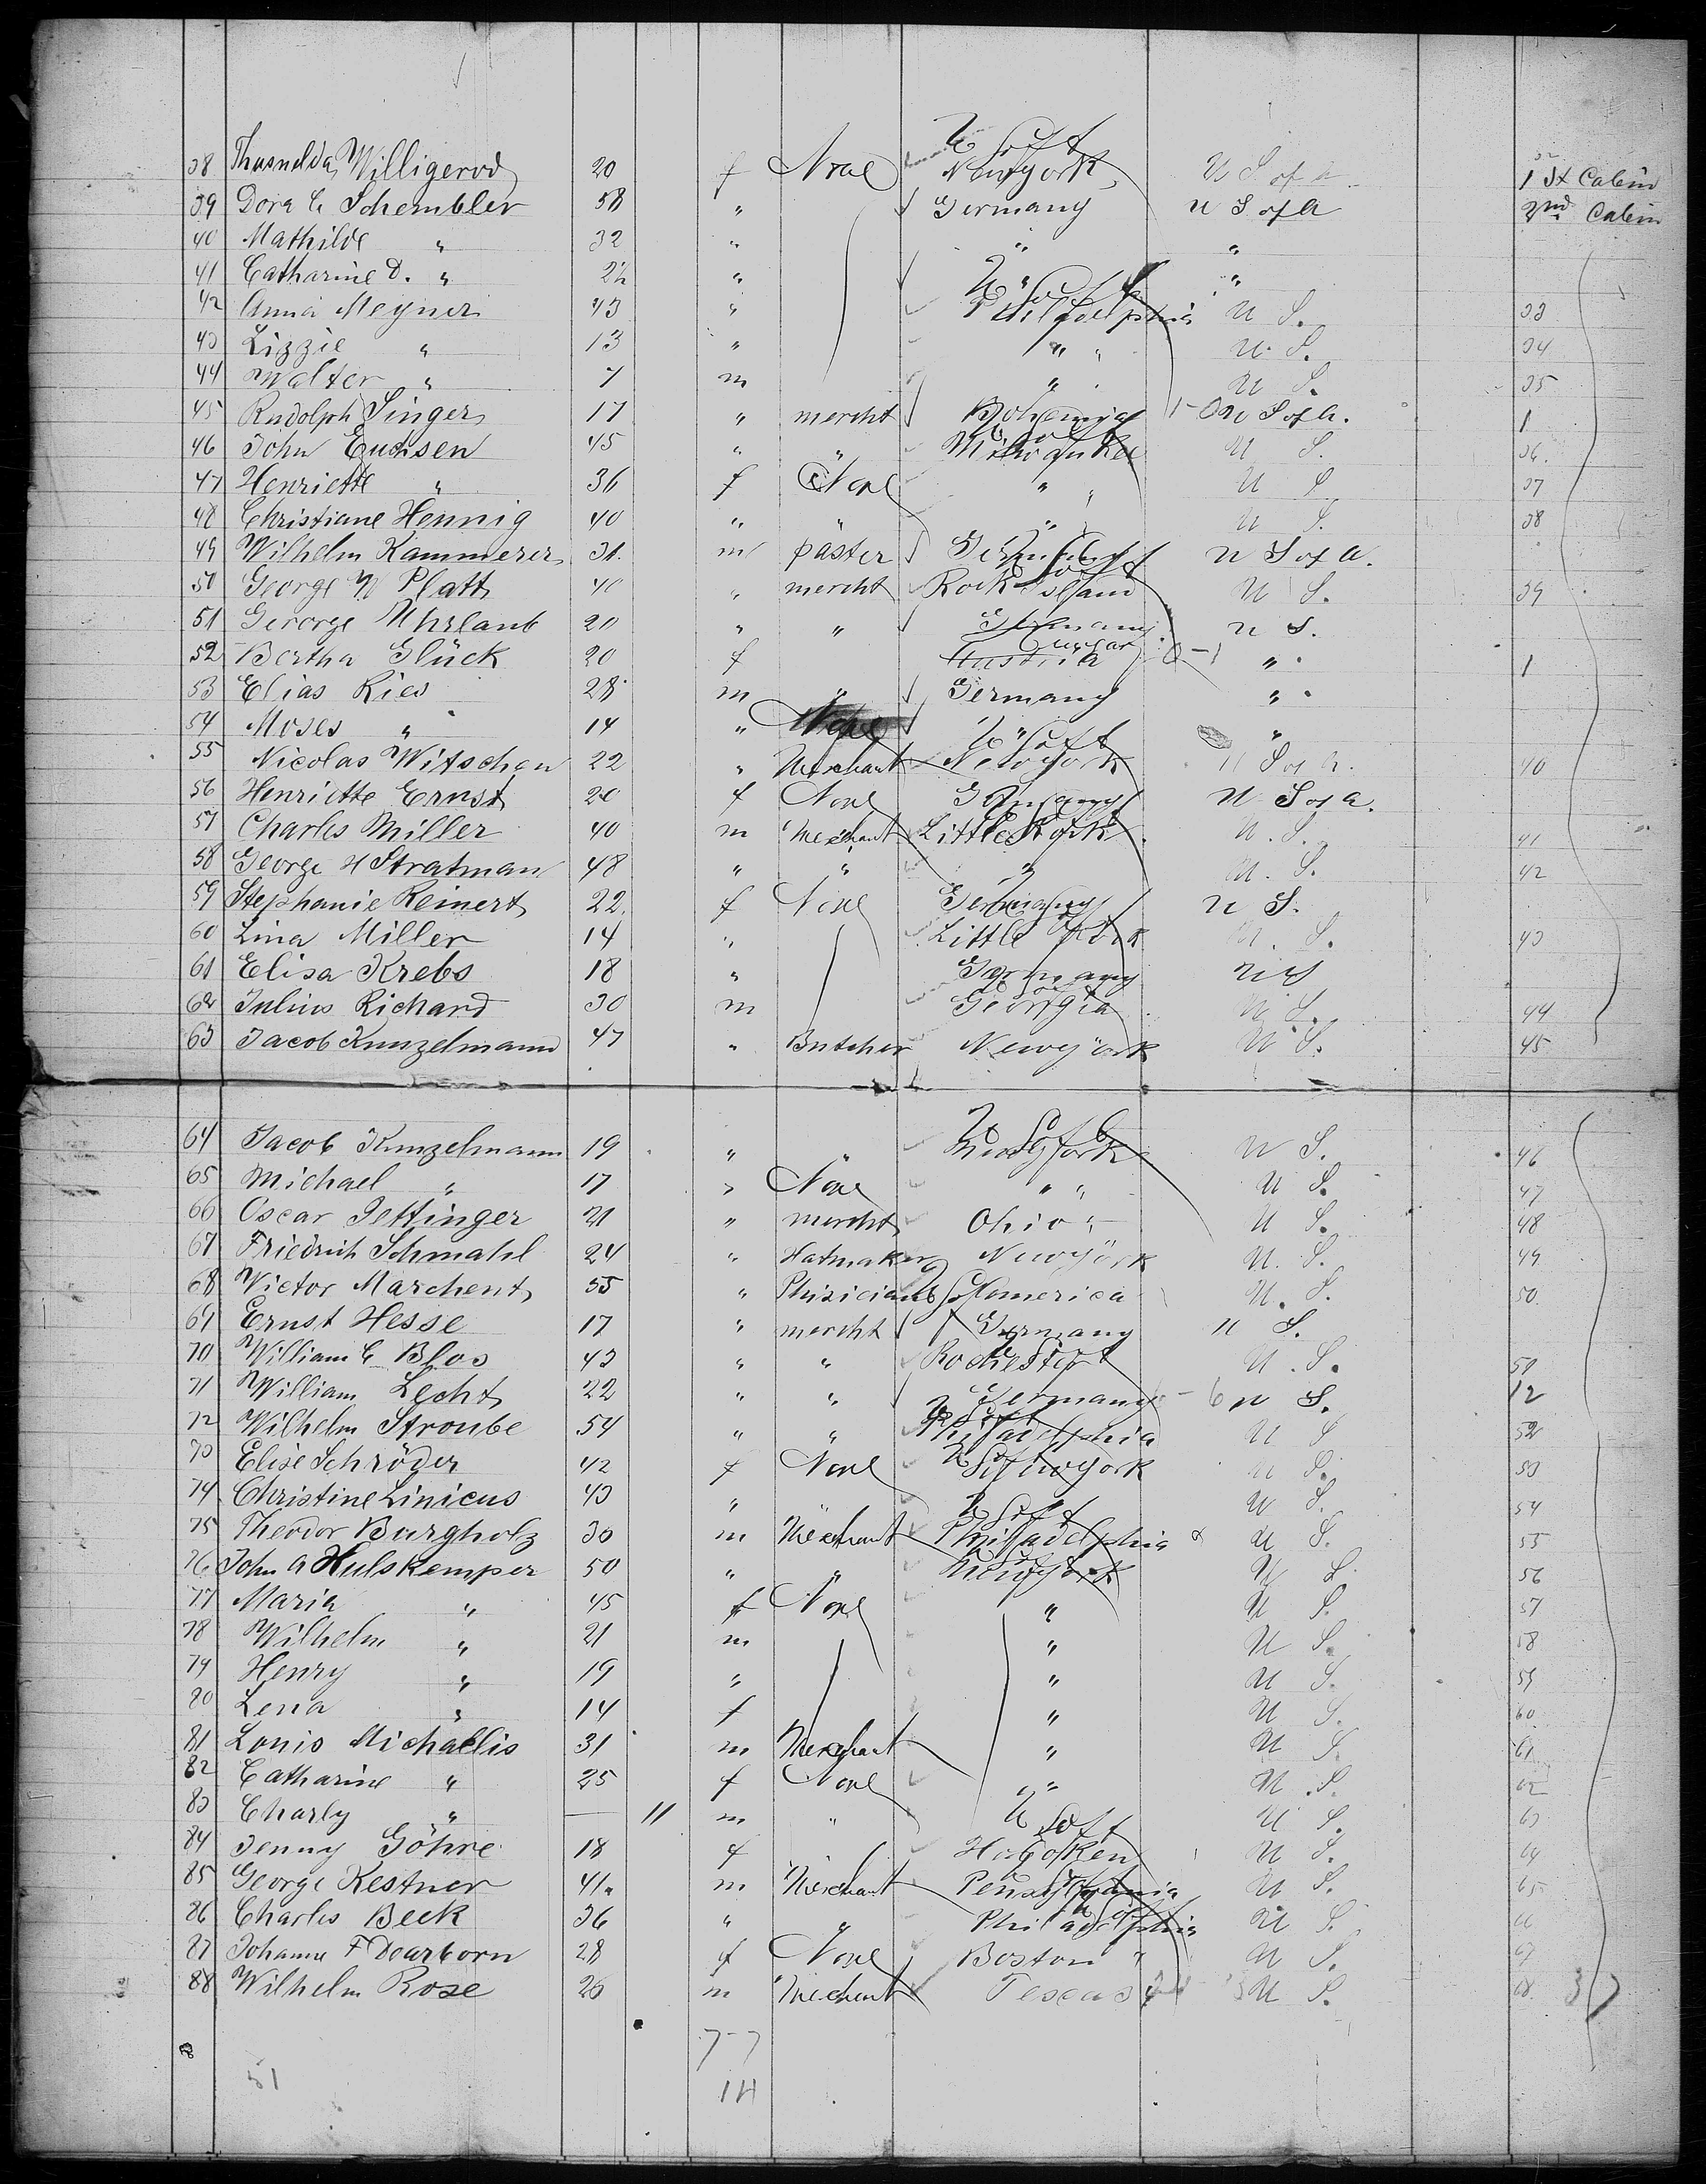 38 Thusnelda Willigerod 20 f None U S of A New york U S of A 1 st Cabin
39 Dora C Schembler 58 " Germany U S of A 2nd Cabin
40 Mathilde " 32 " " "
41 Catharine D. " 24 " " "
42 Anna Meyner 43 " U S of A Philadelphia U S. 33
43 Lizzie " 13 " " " U. S. 34
44 Walter " 7 m " U S. 35
45 Rudolph Singer 17 " mercht Bohemia U S of A. 1
46 John Euchsen 45 " " Milwaukee U S. 36.
47 Henriette " 36 f None " " U S 37
48 Christiane Hennig 40 " " " U S. 38
49 Wilhelm Kammerer 31. m paster Germany U S of A.
50 George W Platt 40 " mercht Rock Island U S. 39
51 Gerorge Uhrlaub 20 " " Germany U S.
52 Bertha Glück 20 f Austria Ungar " 1
53 Elias Ries 28 m " Germany "
54 Moses " 14 " None " "
55 Nicolas Witschen 22 " Merchant U S of A New York U S of A. 40
56 Henriette Ernst 20 f None Germany U S of A.
57 Charles Miller 40 m Merchant Little Rock U. S. 41
58 George H Stratman 48 " " " U. S. 42
59 Stephanie Reinert 22. f None Germany U S.
60 Lina Miller 14 " Little Rock U. S. 43
61 Elisa Krebs 18 " Germany U S
62 Julius Richard 30 m Georgia U S. 44
63 Jacob Kunzelmann 47 " Butcher New york U S. 45
64 Jacob Kunzelmann 19 " " U S of A New york U S. 46
65 Michael " 17 " None " " U S. 47
66 Oscar Jettinger 21 " mercht Ohio " U S. 48
67 Friedrich Schmahl 24 " Hatmaker New york U. S. 49
68 Victor Marchent 55 " Phisician U S of America U. S. 50
69 Ernst Hesse 17 " mercht Germany U S.
70 William C Blos 43 " " Rochester U. S. 51
71 William Lecht 22 " " Germany U S. 12
72 Wilhelm Stroube 54 " " Philadelphia U S 52
73 Elise Schröder 42 f None New york U S. 53
74 Christine Linicus 43 " U S. 54
75 Theodor Burgholz 30 m Merchant U S of A Philadelphia U S. 55
76 John A Hulskemper 50 " " New york U S 56
77 Maria " 45 f None " U S. 57
78 Wilhelm " 21 m " U S. 58
79 Henry " 19 " " U S. 59
80 Lena " 14 f " U S. 60
81 Louis Michaelis 31 m Merchant " U S. 61
82 Catharine " 25 f None " U S. 62
83 Charly " — 11 m " U S. 63
84 Jenny Göhre 18 f U S of A Hoboken U S. 64
85 George Kestner 41. m Merchant Pensylvania U S. 65
86 Charles Beck 36 " " Philadelphia U S. 66
87 Johanna F Dearborn 28 f None Boston " U S. 67
88 Wilhelm Rose 26 m Merchant Texas U S. 68
51
7-7
14